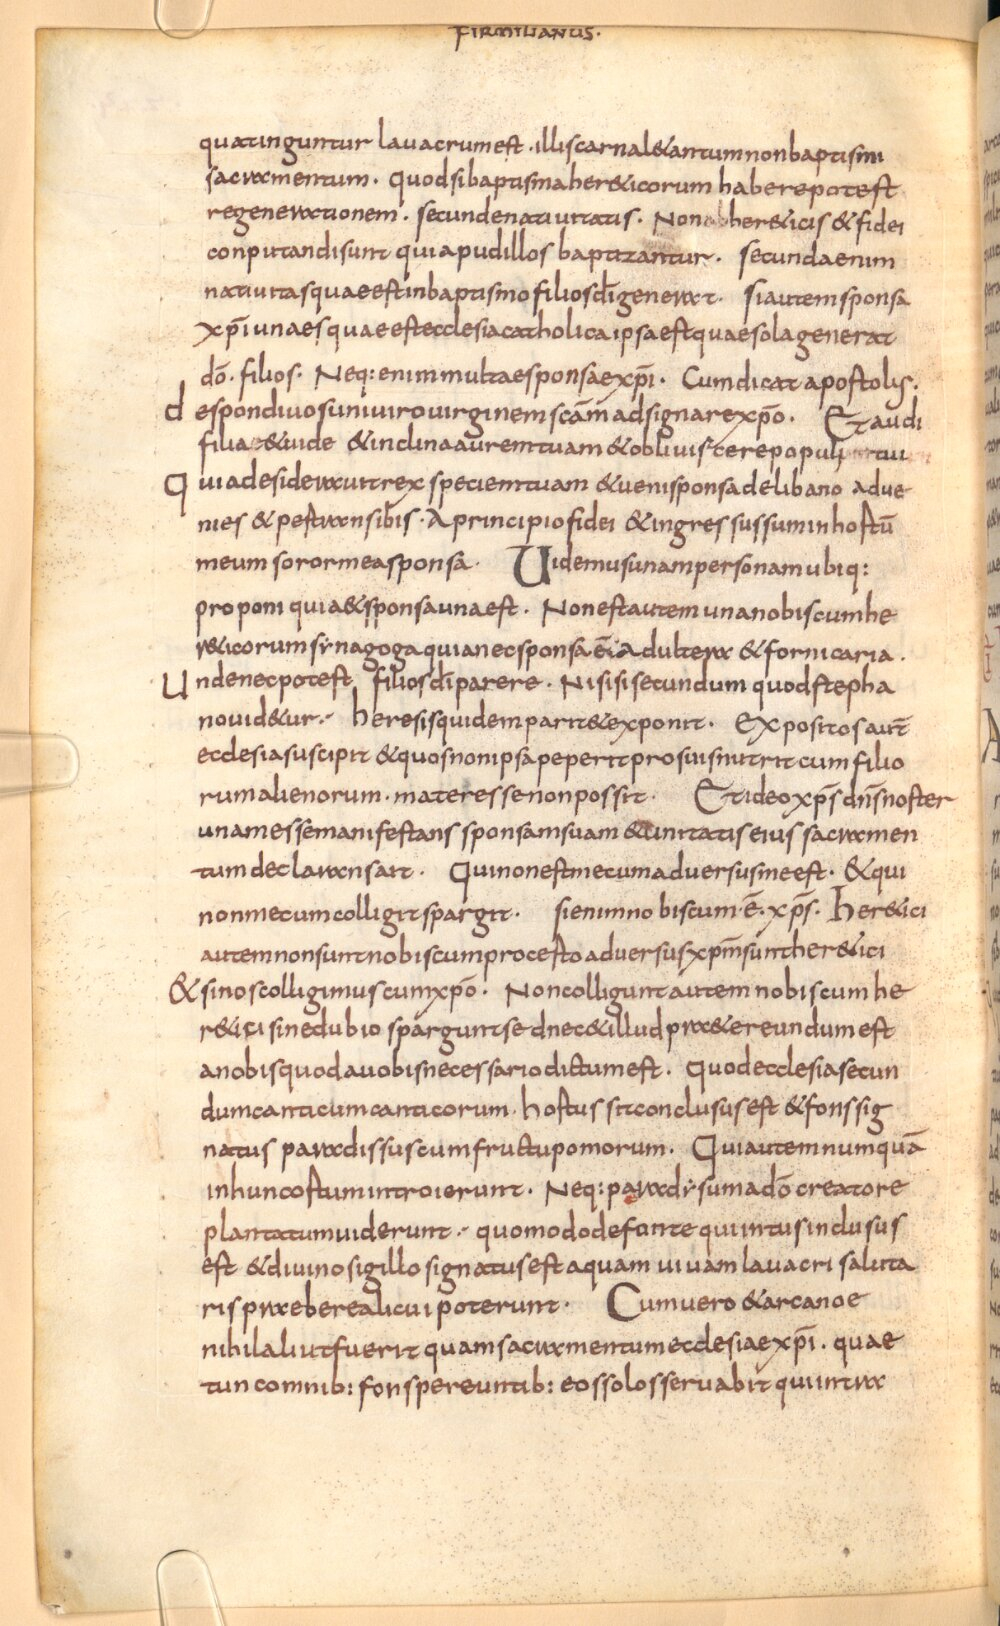 FIRMILIANUS.
quatinguntur lavacrum est. illis carnal& antum non baptismi
sacramentum. quod si baptisma her&icorum habere potest
regenerationem. secunde nativitatis. Non her&icis & fidei
conputandi sunt qui apud illos baptizantur. secunda enim
nativitas quae est in baptismo filios dī generat. si autem sponsa
xpī una es quae est ecclesia catholica ipsa est quae sola generat
dō. filios. Neq: enim multae sponsae xpī. Cum dicat apostolis.
despondi vos uni viro virginem scām adsignare xpō. Et audi
filia & vide & inclina aurem tuam & obliviscere populi tui
Quia desideravit rex speciem tuam & veni sponsa de libano adve
nies & pertransibis. A principio fidei & ingressus sum in hortū
meum soror mea sponsa. Videmus unam personam ubiq:
proponi quia & sponsa una est. Non est autem una nobiscum he
r&icorum synagoga quia nec sponsa ē Adultera & fornicaria.
Unde nec potest filios dī parere. Nisi si secundum quod stepha
no vid&ur. heresis quidem parit & exponit. Expositos aut̄
ecclesia suscipit & quos non ipsa peperit pro suis nutrit cum filio
rum alienorum. mater esse non possit. Et ideo xp̄s dn̄s noster
unam esse manifestans sponsam suam & unitatis eius sacramen
tum declarans ait. Qui non est mecum adversus me est. & qui
non mecum colligit spargit. si enim nobiscum ē. xp̄s. Her&ici
autem non sunt nobiscum procesto adversus xpm̄ sunt her&ici
& si nos colligimus cum xpō. Non colligunt autem nobiscum he
r&ici sine dubio spargunt sed nec & illud pra&ereundum est
a nobis quod a vobis necessario dictum est. Quod ecclesia secun
dum canticum canticorum. hortus sit conclusus est & fons sig
natus paradissus cum fructu pomorum. Qui autem numquā
in hunc ortum introierunt. Neq: paradysum a dō creatore
plantatum viderunt. quomodo de fonte qui intus inclusus
est & divino sigillo signatus est aquam vivam lavacri saluta
ris praebere alicui poterunt. Cum vero & arca noe
nihil aliut fuerit quam sacramentum ecclesiae xpī. quae
tunc omnib: fons pereuntib: eos solos servabit qui intra